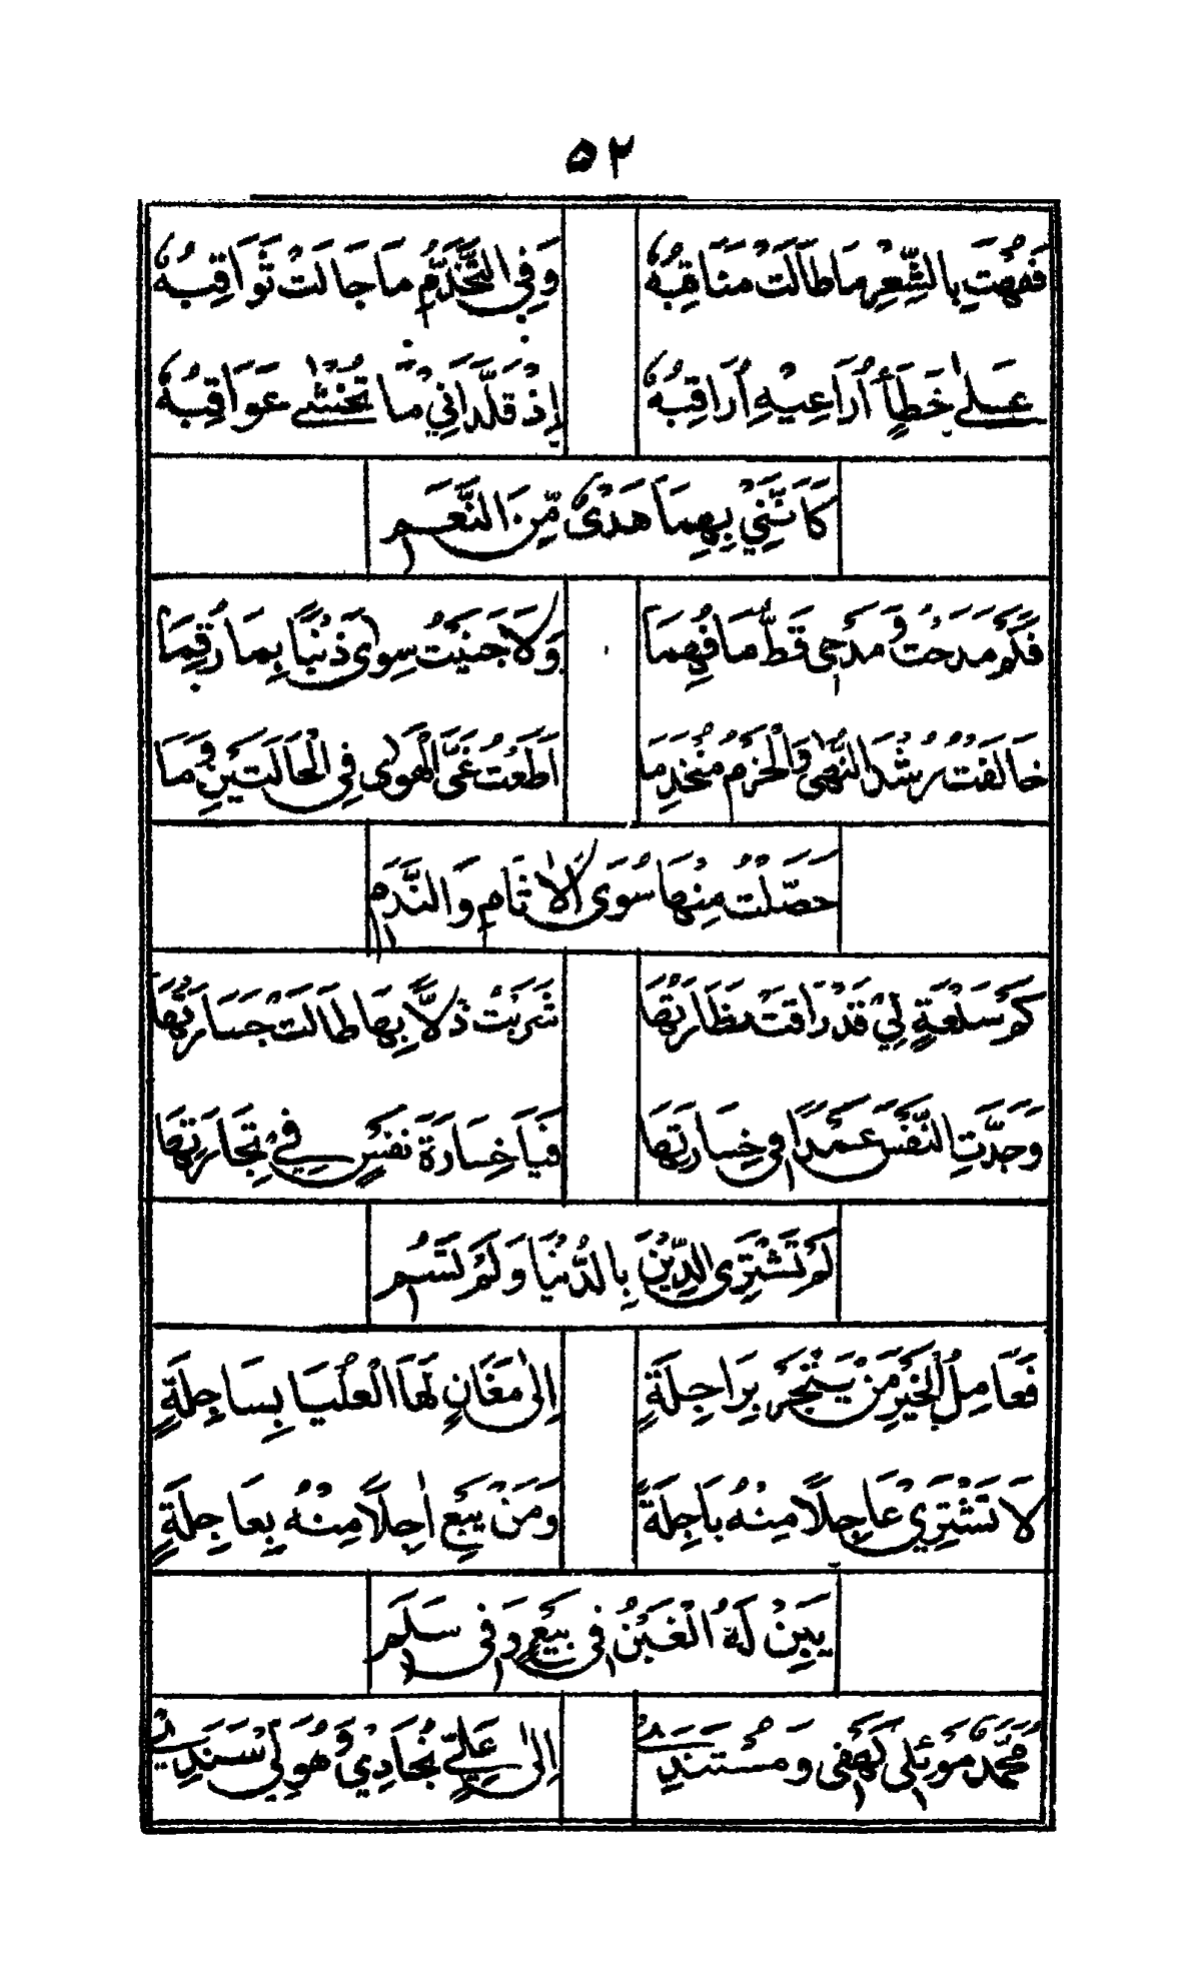 ٥٢
فَفُهْتُ بِالشِّعْرِ مَا طَالَتْ مَنَاقِبُهُ وَفِي التَّخَدُّمِ مَا جَالَتْ ثَوَاقِبُهُ
عَلٰى خَطَأٍ أُرَاعِيْهِ أُرَاقِبُهُ إِذْ قَلَّدَانِيْ مَا تُخْشٰى عَوَاقِبُهُ
كَأَنَّنِيْ بِهِمَا هَدْىٌ مِّنَ النَّعَمِ
فَكَمْ مَدَحْتُ وَمَدْحِى قَطُّ مَا فُهِمَا وَلَا جَنَيْتُ سِوٰى ذَنْبًا بِمَا رُقِمَا
خَالَفْتُ رُشْدَ النُّهٰى وَالْحَزْمُ مُنْخَدِمَا اَطَعْتُ غَىَّ الْهَوٰى فِى الْحَالَتَيْنِ وَمَا
حَصَّلْتُ مِنْهَا سُوَى الْاٰثَامِ وَالنَّدَمِ
كَمْ سَلْعَةٍ لِيْ قَدْ رَاقَتْ نَظَارَتُهَا شَرَيْتُ ذُلًّا بِهَا طَالَتْ جَسَارَتُهَا
وَجَدَّتِ النَّفْسُ عَمَدًا فِى خِسَارَتِهَا فَيَا خِسَارَةَ نَفْسٍ فِيْ تِجَارَتِهَا
لَمْ تَشْتَرِى الدِّيْنَ بِالدُّنْيَا وَلَمْ تَسُمِ
فَعَامِلُ الْخَيْرِ مَنْ يَتْجَرْ بِرَاحِلَةٍ اِلٰى مَغَانٍ لَهَا الْعُلْيَا بِسَاحِلَةٍ
لَا تَشْتَرِيْ عَاجِلًا مِنْهُ بِاٰجِلَةٍ وَمَنْ يَبِعْ اٰجِلًا مِنْهُ بِعَاجِلَةٍ
يَبِنْ لَهُ الْغَبْنُ فِى بَيْعٍ وَفِى سَلَمِ
مُحَمَّدٌ مَوْئِلِى كَهْفِى وَمُسْتَنَدِيْ اِلٰى عَلِيٍّ نِجَادِيْ وَهُوَ لِىْ سَنَدِيْ